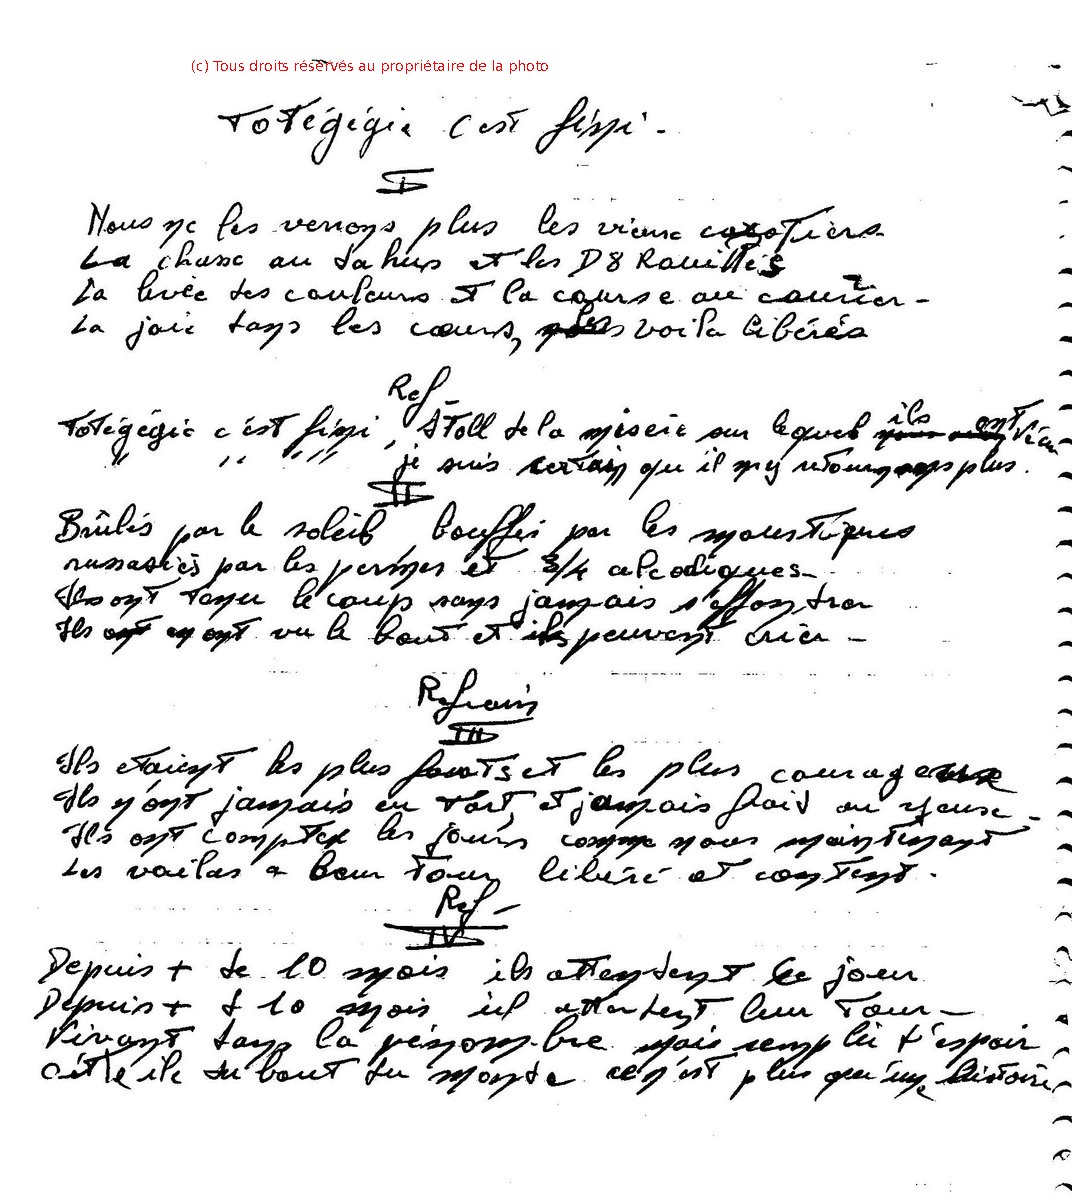 (c) Tous droits réservés au propriétaire de la photo
Totégégie c'est fini -
I
Nous ne les verrons plus les vieux cocotiers
La chasse au tahus et les D8 Rouillés
La levée des couleurs et la course au courrier -
La joie dans les cœurs, les voila libérés
Ref -
Totégégie c'est fini, Atoll de la misère sur lequel ils ont vécu
" " " " je suis certain qu'il n'y retournons plus.
II
Brûlés par le soleil bouffés par les moustiques
rassasiés par les permes et 3/4 alcooliques -
Ils ont tenu le coup sans jamais s'effondrer
Ils en ont vu le bout et ils peuvent crier -
Refrain
III
Ils etaient les plus forts et les plus courageux
Ils n'ont jamais eu tort, et jamais froid au yeux -
Ils ont compter les jours comme nous maintenant
Les voilas a leur tour libéré et content.
Ref -
IV
Depuis + de 10 mois ils attendent le jour
Depuis + d 10 mois ils attendent leur tour -
Vivant dans la pénombre mais rempli d'espoir
cette ile du bout du monde ce n'est plus qu'une histoire